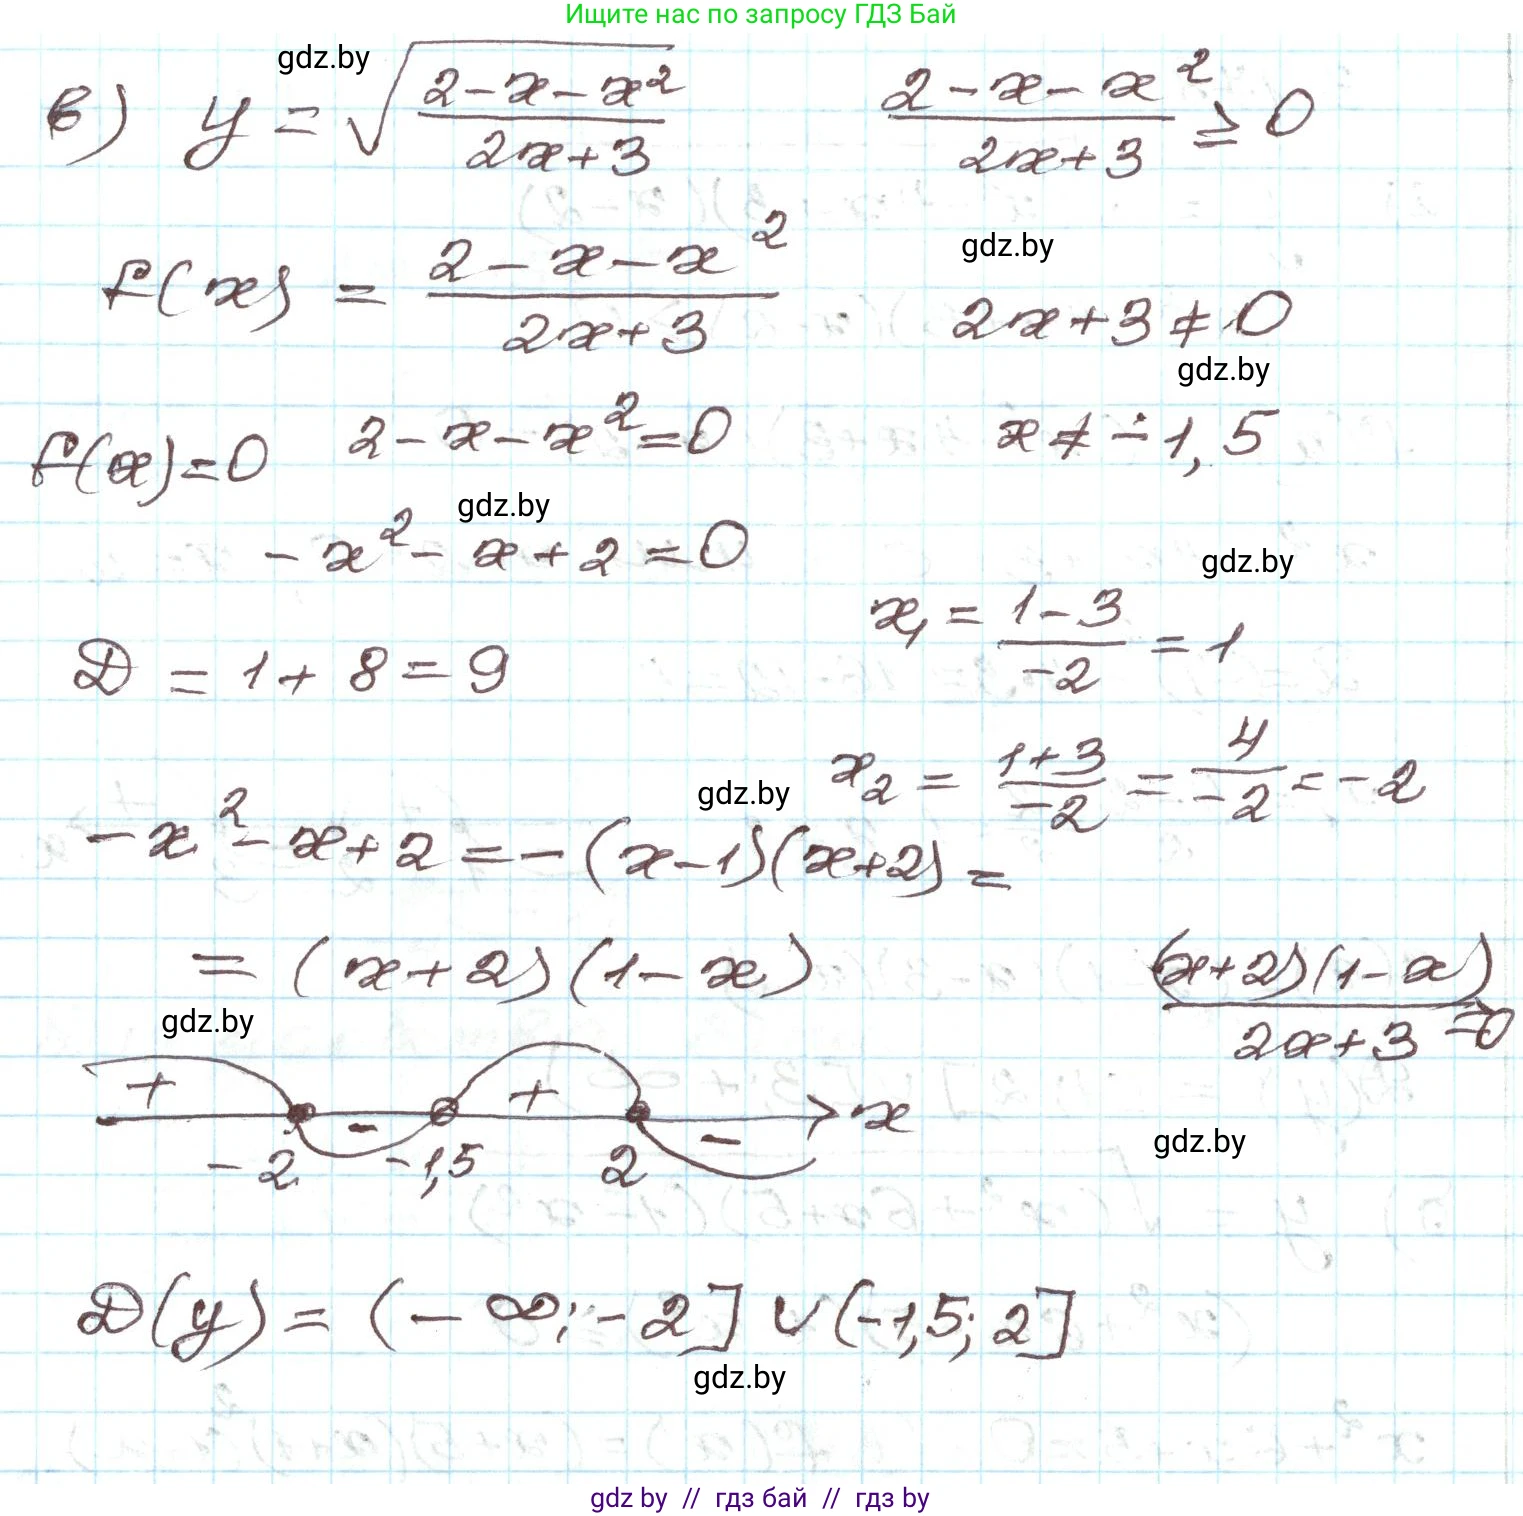 Ищите нас по запросу ГДЗ Бай
gdz.by
в) y = √((2-x-x²)/(2x+3))   (2-x-x²)/(2x+3) ≥ 0
f(x) = (2-x-x²)/(2x+3)
gdz.by
2x+3≠0
gdz.by
f(x)=0   2-x-x²=0   x≠-1,5
gdz.by
-x²-x+2=0
gdz.by
x₁ = (1-3)/(-2) = 1
D = 1+8=9
x₂ = (1+3)/(-2) = 4/(-2) = -2
gdz.by
-x²-x+2=-(x-1)(x+2)=
= (x+2)(1-x)   ((x+2)(1-x))/(2x+3) =0
gdz.by
+ - + - x
-2 -1,5 2
gdz.by
D(y) = (-∞;-2]∪(-1,5;2]
gdz.by
gdz by // гдз бай // гдз by